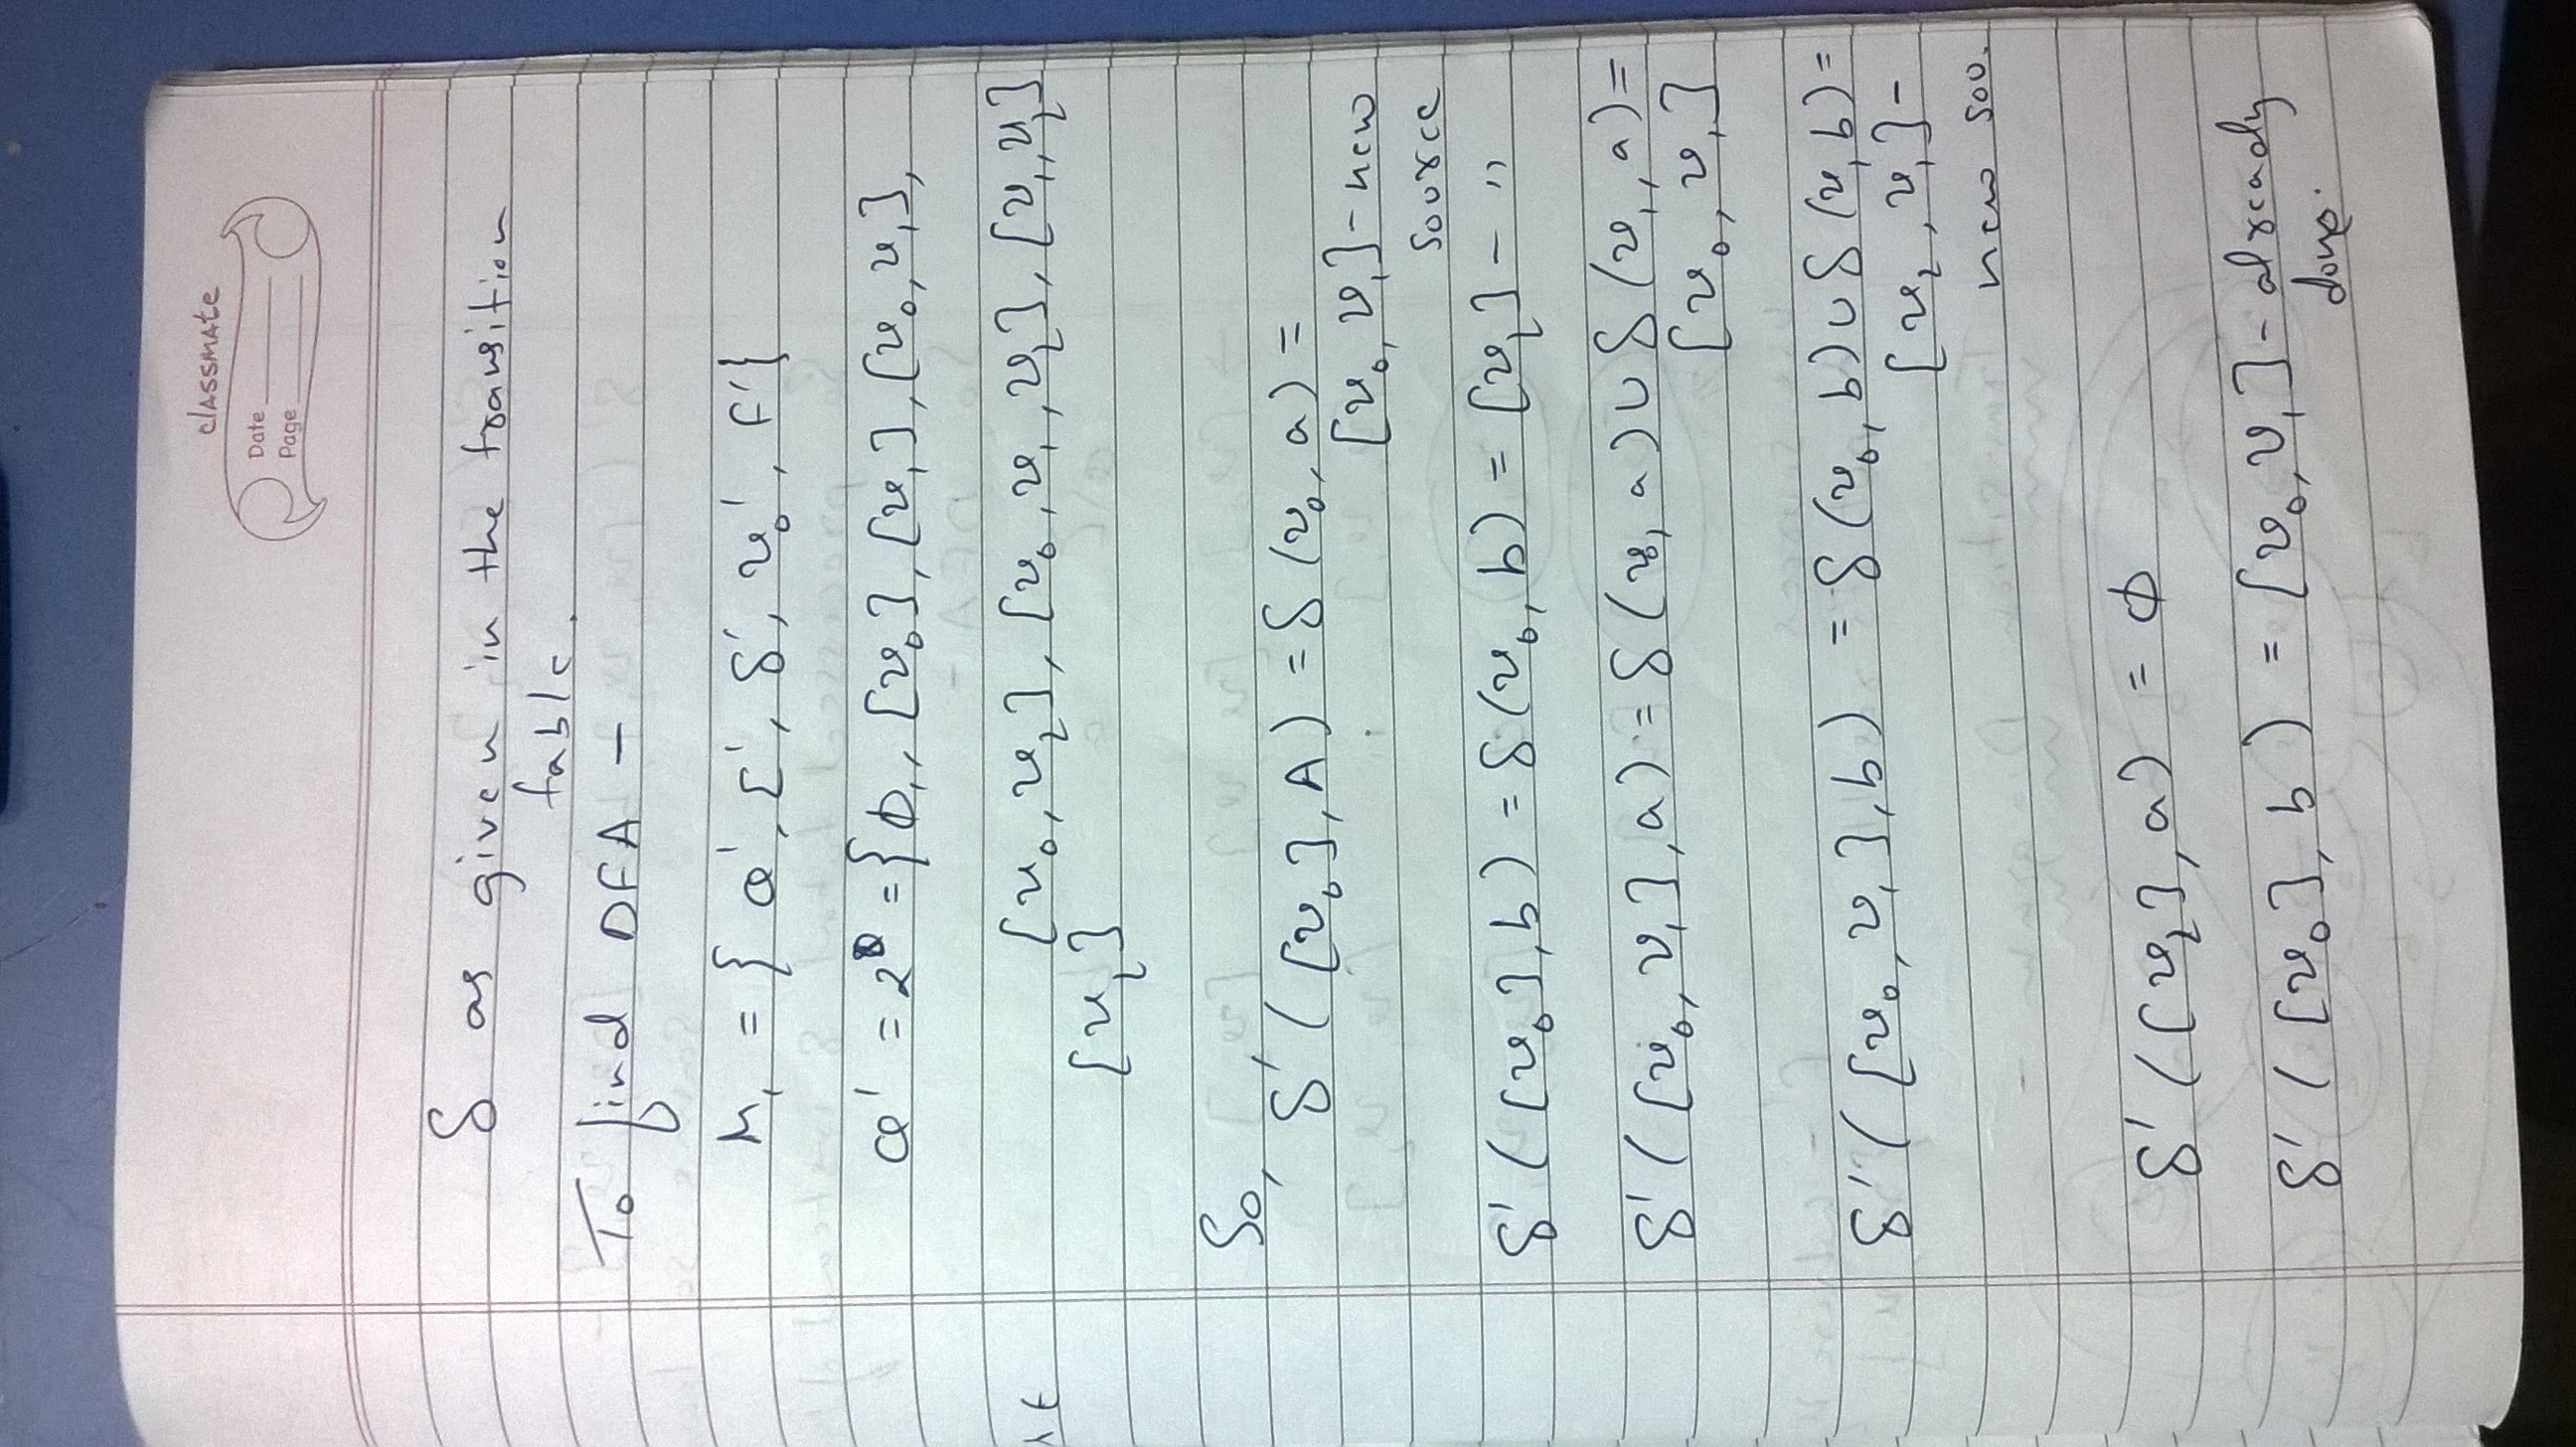 classmate
Date
Page
δ as given in the transition
table.
To find DFA -
M₁ = { Q', Σ', δ', v₀', F' }
Q' = 2^Q = { ϕ,, [v₀], [v₁], [v₀, v₁],
[v₀, v₂], [v₀, v₁, v₂], [v₁, v₂]
[v₂]
So,
δ' ( [v₀], A ) = δ (v₀, a) =
[v₀, v₁] - new
source
δ' ( [v₀], b ) = δ (v₀, b) = [v₂] - "
δ' ( [v₀, v₁], a ) = δ (v₀, a) ∪ δ (v₁, a) =
[v₀, v₁]
δ' ( [v₀, v₁], b ) = δ (v₀, b) ∪ δ (v₁, b) =
[v₂, v₁] -
new sou.
δ' ( [v₂], a ) = ϕ
δ' ( [v₀], b ) = [v₀, v₁] - already
done.